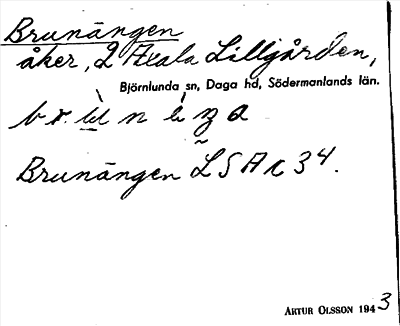 Brunängen
åker, 2 Axala Lillgården,
Björnlunda sn, Daga hd, Södermanlands län.
Brunängen LSA c 34.
ARTUR OLSSON 1943